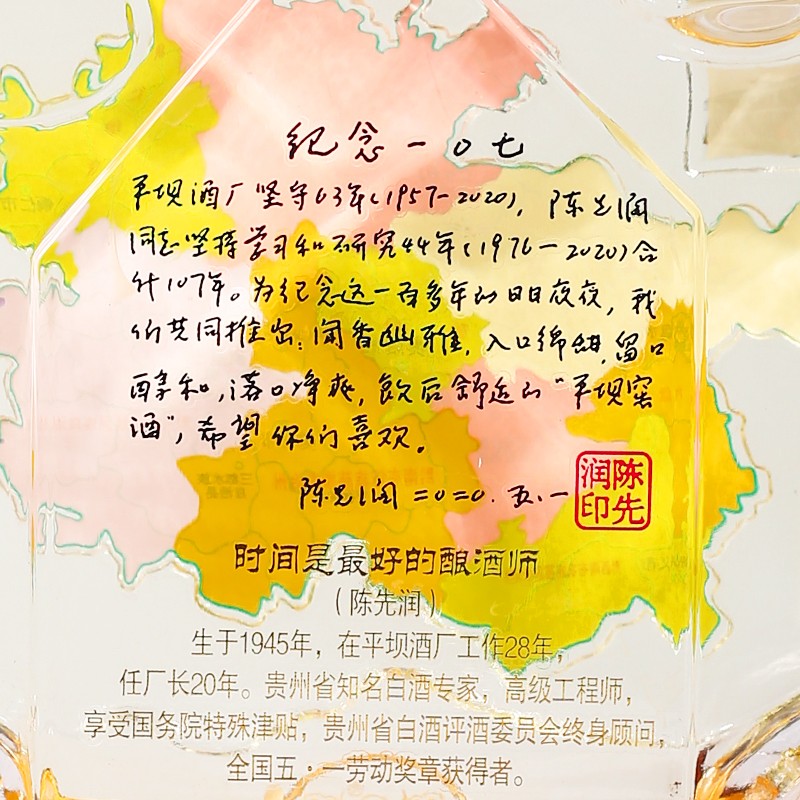 纪念一0七
平坝酒厂坚守63年(1957-2020)，陈先润
同志坚持学习和研究44年(1976-2020)合
计107年。为纪念这一百多年的日日夜夜，我
们共同推出：闻香幽雅，入口绵甜，留口
醇和，落口净爽，饮后舒适的“平坝窖
酒”，希望你们喜欢。
陈先润 二0二0.五.一
陈先润印
时间是最好的酿酒师
（陈先润）
生于1945年，在平坝酒厂工作28年，
任厂长20年。贵州省知名白酒专家，高级工程师，
享受国务院特殊津贴，贵州省白酒评酒委员会终身顾问，
全国五·一劳动奖章获得者。